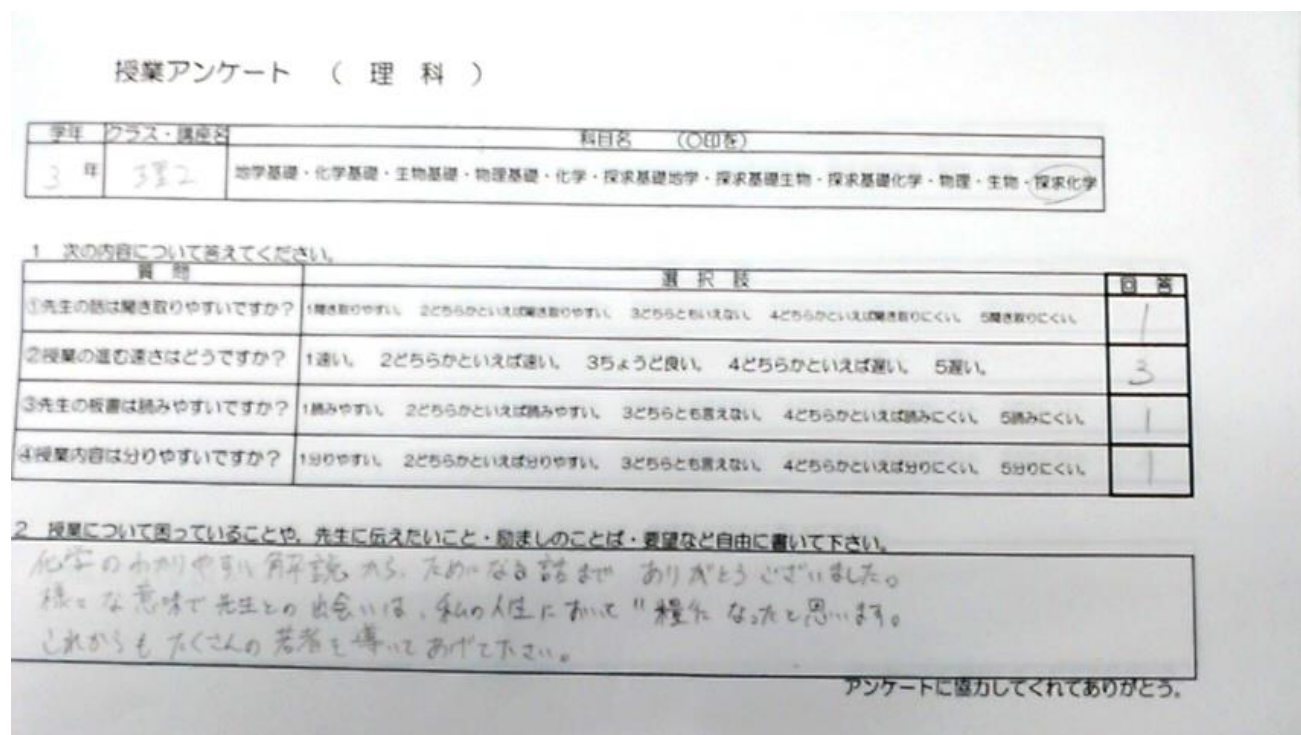 授業アンケート （ 理 科 ）
学年 クラス・講座名 科目名 （〇印を）
3 年 3理2 地学基礎・化学基礎・生物基礎・物理基礎・化学・探求基礎地学・探求基礎生物・探求基礎化学・物理・生物・探求化学
1 次の内容について答えてください。
質 問 選 択 肢 回 答
①先生の話は聞き取りやすいですか？ 1聞き取りやすい。 2どちらかといえば聞き取りやすい。 3どちらともいえない。 4どちらかといえば聞き取りにくい。 5聞き取りにくい。 1
②授業の進む速さはどうですか？ 1速い。 2どちらかといえば速い。 3ちょうど良い。 4どちらかといえば遅い。 5遅い。 3
③先生の板書は読みやすいですか？ 1読みやすい。 2どちらかといえば読みやすい。 3どちらとも言えない。 4どちらかといえば読みにくい。 5読みにくい。 1
④授業内容は分りやすいですか？ 1分りやすい。 2どちらかといえば分りやすい。 3どちらとも言えない。 4どちらかといえば分りにくい。 5分りにくい。 1
2 授業について困っていることや、先生に伝えたいこと・励ましのことば・要望など自由に書いて下さい。
化学のわかりやすい解説から、ためになる話まで ありがとうございました。
様々な意味で先生との出会いは、私の人生において"糧になったと思います。
これからもたくさんの若者を導いてあげて下さい。
アンケートに協力してくれてありがとう。